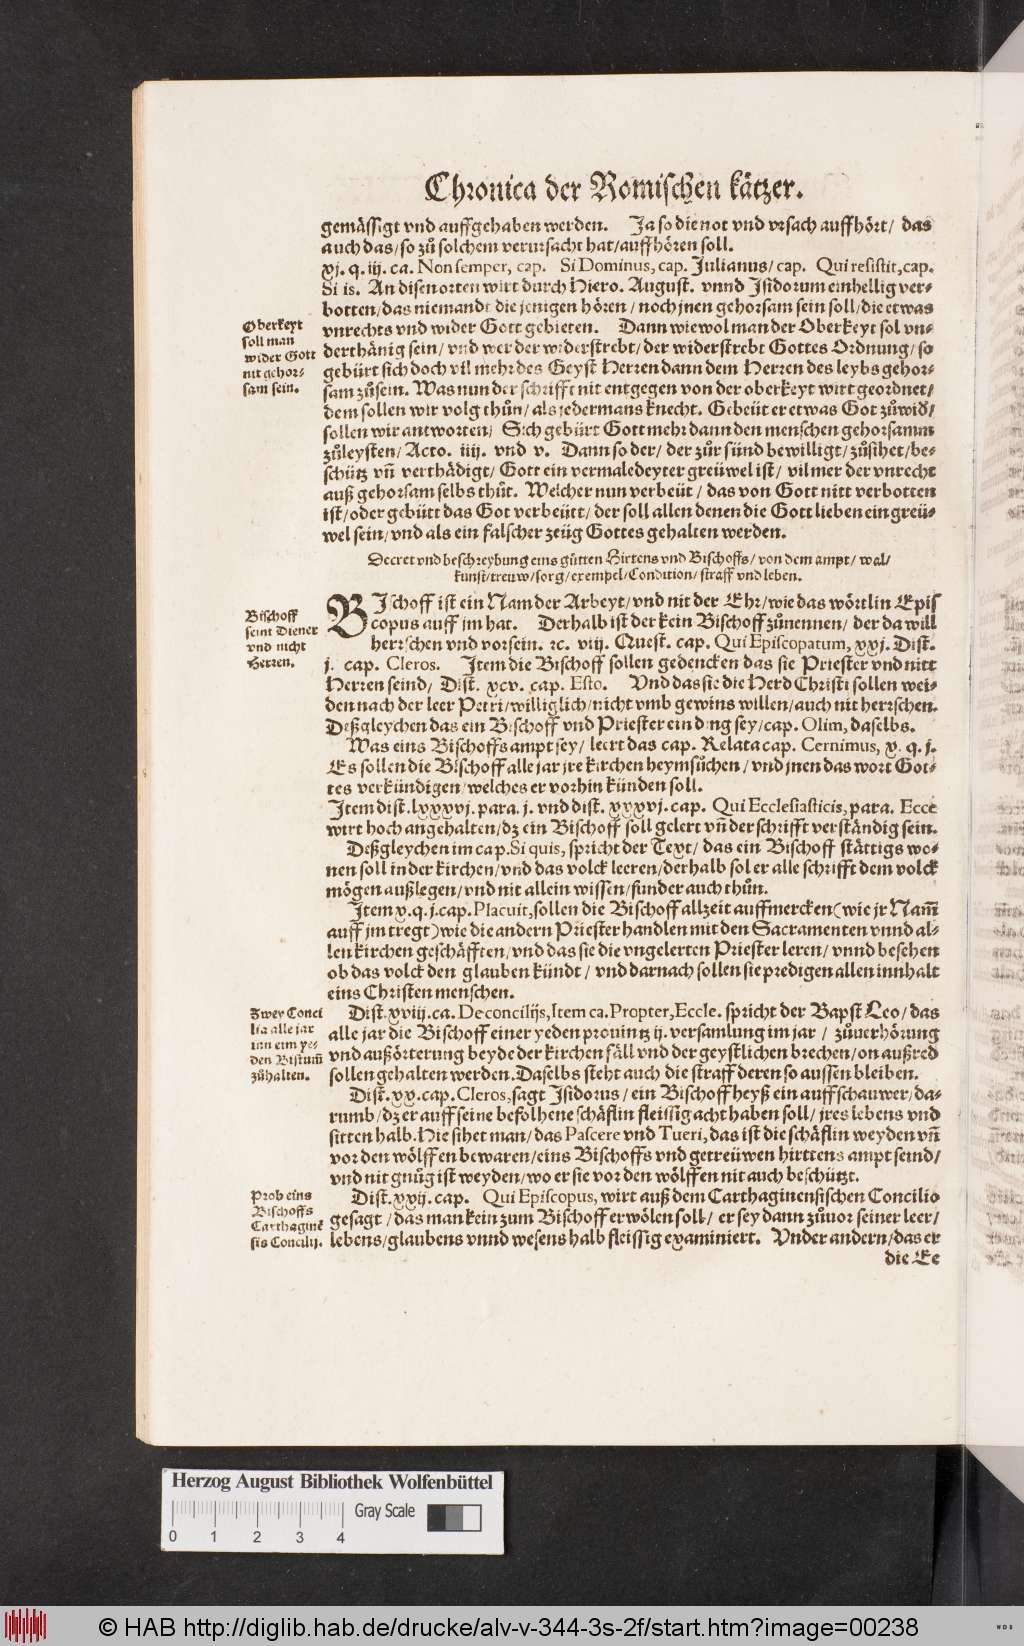 Chronica der Romischen kätzer.
gemässigt vnd auffgehaben werden. Ja so die not vnd vrsach auffhört/ das
auch das/so zů solchem verursacht hat/auffhören soll.
xj. q. iij. ca. Non semper, cap. Si Dominus, cap. Julianus/ cap. Qui resistit, cap.
Si is. An disen orten wirt durch Hiero. August. vnnd Isidorum einhellig ver-
botten/das niemandt die jenigen hören/ noch jnen gehorsam sein soll/die etwas
Oberkeyt
soll man
wider Gott
nit gehor-
sam sein.
vnrechts vnd wider Gott gebieten. Dann wiewol man der Oberkeyt sol vn-
derthänig sein/ vnd wer der widerstrebt/der widerstrebt Gottes Ordnung/ so
gebürt sich doch vil mehr des Geyst Herren dann dem Herren des leybs gehor-
sam zůsein. Was nun der schrifft nit entgegen von der oberkeyt wirt geordnet/
dem sollen wir volg thůn/als jedermans knecht. Gebeüt er etwas Got zůwid/
sollen wir antworten/ Sich gebürt Gott mehr dann den menschen gehorsamm
zůleysten/ Acto. iiij. vnd v. Dann so der/ der zůr sünd bewilligt/ zůsihet/be-
schütz vñ verthädigt/ Gott ein vermaledeyter greüwel ist/ vil mer der vnrecht
auß gehorsam selbs thůt. Welcher nun verbeüt/ das von Gott nitt verbotten
ist/oder gebütt das Got verbeütt/der soll allen denen die Gott lieben ein greü-
wel sein/vnd als ein falscher zeüg Gottes gehalten werden.
Decret vnd beschreybung eins gůtten Hirtens vnd Bischoffs/von dem ampt/ wal/
kunst/treuw/sorg/exempel/Condition/straff vnd leben.
Bischoff
seint Diener
vnd nicht
Herren.
BIschoff ist ein Nam der Arbeyt/vnd nit der Ehr/wie das wörtlin Epis
copus auff jm hat. Derhalb ist der kein Bischoff zůnennen/ der da will
herrschen vnd vorsein. ꝛc. viij. Quest. cap. Qui Episcopatum, xxj. Dist.
j. cap. Cleros. Item die Bischoff sollen gedencken das sie Priester vnd nitt
Herren seind/ Dist. xcv. cap. Esto. Vnd das sie die Herd Christi sollen wei-
den nach der leer Petri/williglich/nicht vmb gewins willen/auch nit herrschen.
Deßgleychen das ein Bischoff vnd Priester ein ding sey/cap. Olim, daselbs.
Was eins Bischoffs ampt sey/ leert das cap. Relata cap. Cernimus, x. q. j.
Es sollen die Bischoff alle jar jre kirchen heymsůchen/ vnd jnen das wort Got-
tes verkündigen/welches er vorhin künden soll.
Item dist. lxxxvj. para. j. vnd dist. xxxvj. cap. Qui Ecclesiasticis, para. Ecce
wirt hoch angehalten/dz ein Bischoff soll gelert vñ der schrifft verständig sein.
Deßgleychen im cap. Si quis, spricht der Text/ das ein Bischoff stättigs wo-
nen soll in der kirchen/vnd das volck leeren/derhalb sol er alle schrifft dem volck
mögen außlegen/vnd nit allein wissen/sunder auch thůn.
Item x. q. j. cap. Placuit, sollen die Bischoff allzeit auffmercken(wie jr Nam̃
auff jm tregt)wie die andern Priester handlen mit den Sacramenten vnnd al-
len kirchen geschäfften/vnd das sie die vngelerten Priester leren/ vnnd besehen
ob das volck den glauben kündt/ vnd darnach sollen sie predigen allen innhalt
eins Christen menschen.
Zwey Conci
lia alle jar
inn eim ye-
den Bistum̃
zůhalten.
Dist. xviij. ca. De concilijs, Item ca. Propter, Eccle. spricht der Bapst Leo/ das
alle jar die Bischoff einer yeden prouintz ij. versamlung im jar/ zůuerhörung
vnd außörterung beyde der kirchen fäll vnd der geystlichen brechen/on außred
sollen gehalten werden. Daselbs steht auch die straff deren so aussen bleiben.
Dist. xx. cap. Cleros, sagt Isidorus/ ein Bischoff heyß ein auffschauwer/da-
rumb/dz er auff seine befolhene schäflin fleissig acht haben soll/ jres lebens vnd
sitten halb. Hie sihet man/das Pascere vnd Tueri, das ist die schäflin weyden vñ
vor den wölffen bewaren/eins Bischoffs vnd getreüwen hirttens ampt seind/
vnd nit gnůg ist weyden/wo er sie vor den wölffen nit auch beschützt.
Prob eins
Bischoffs
Carthaginẽ
sis Concilij.
Dist. xxij. cap. Qui Episcopus, wirt auß dem Carthaginensischen Concilio
gesagt/das man kein zum Bischoff erwölen soll/ er sey dann zůuor seiner leer/
lebens/glaubens vnnd wesens halb fleissig examiniert. Vnder andern/das er
die Ee
Herzog August Bibliothek Wolfenbüttel
Gray Scale
0 1 2 3 4
© HAB http://diglib.hab.de/drucke/alv-v-344-3s-2f/start.htm?image=00238